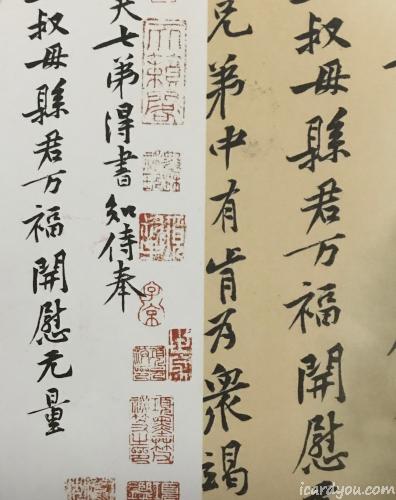 叔母縣君万福開慰
兄弟中有肯为衆竭
天籟閣
子京
七弟得書知侍奉
叔母縣君万福開慰无量
icardyou.com